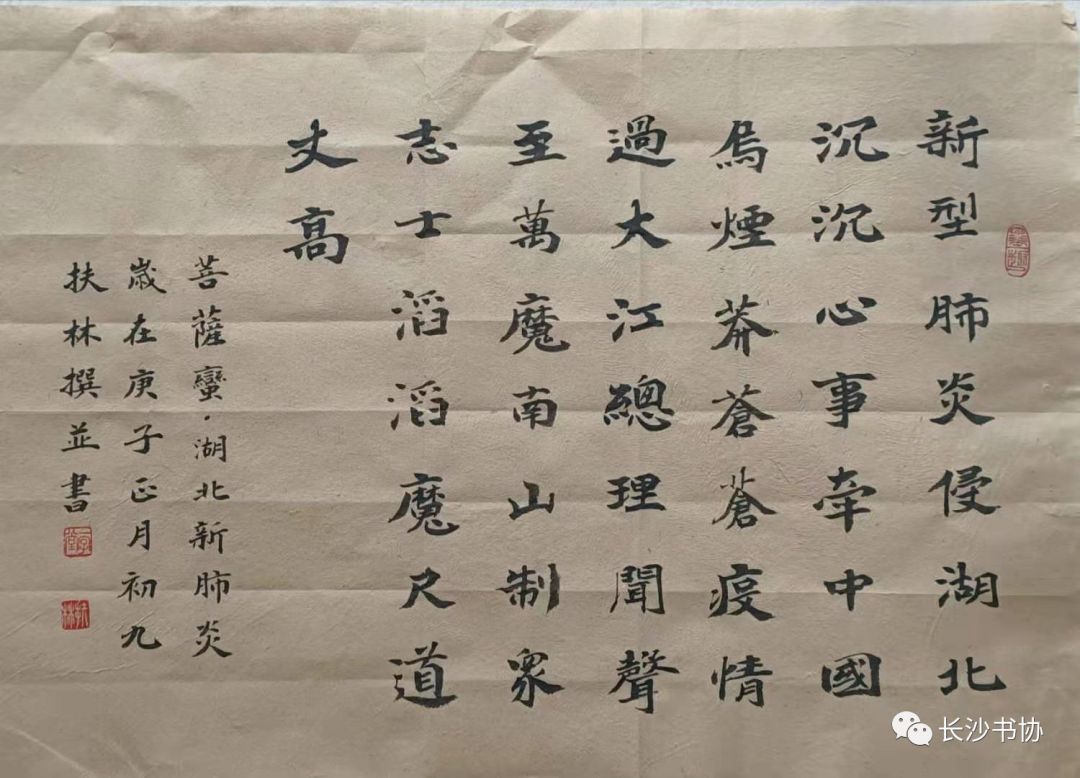 新型肺炎侵湖北
沉沉心事牵中國
烏煙莽蒼蒼疫情
過大江總理聞聲
至萬魔南山制眾
志士滔滔魔尺道
丈高
菩薩蠻·湖北新肺炎
歲在庚子正月初九
扶林撰並書
长沙书协